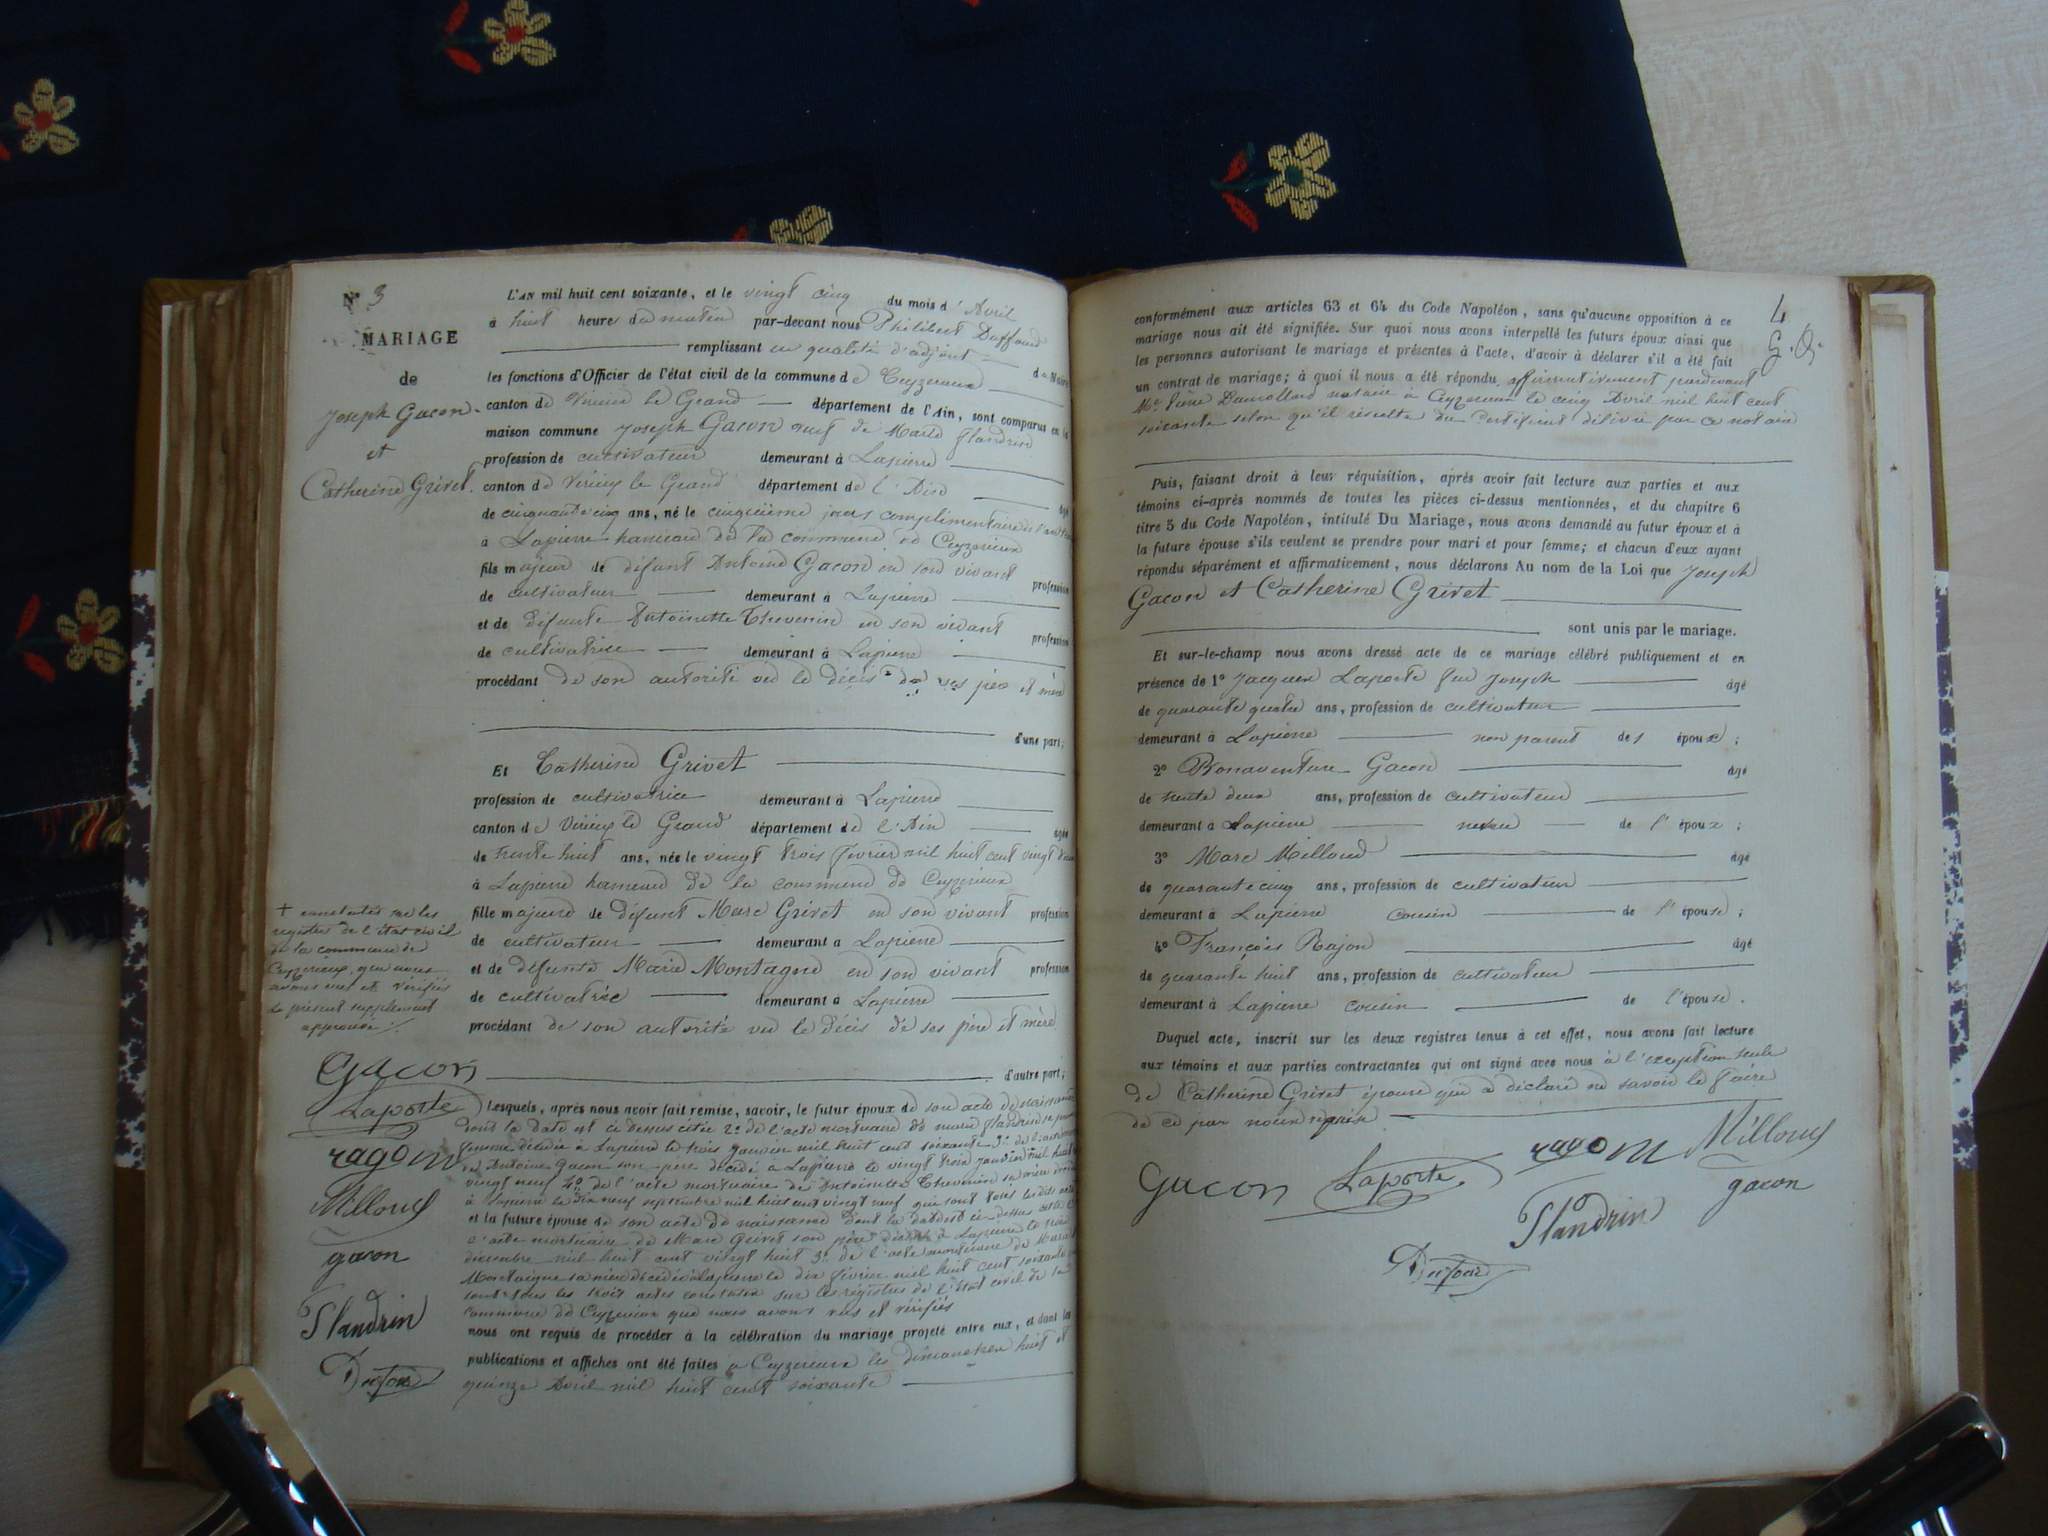 N° 3
MARIAGE
de
Joseph Gacon
et
Catherine Grivet
L'AN mil huit cent soixante, et le vingt cinq du mois d'Avril
à huit heure du matin par-devant nous Philibert
remplissant en qualité d'adjoint du Maire
les fonctions d'Officier de l'état civil de la commune de Ceyzerieux
canton de Virieu le Grand département de l'Ain, sont comparus en la
maison commune Joseph Gacon veuf de Marie flandrin
profession de cultivateur demeurant à Lapierre
canton de Virieux le Grand département de l'Ain âgé
de cinquante cinq ans, né le cinquième jours complimentaire de l'an
à Lapierre hameau de la commune de Ceyzerieux
fils majeur de défunt Antoine Gacon en son vivant profession
de cultivateur demeurant à Lapierre
et de défunte Antoinette Thevenin en son vivant profession
de cultivatrice demeurant à Lapierre
procédant de son autorité vu le décès de ses père et mère
d'une part;
Et Catherine Grivet
profession de cultivatrice demeurant à Lapierre
canton de Virieux le Grand département de l'Ain agée
de trente huit ans, née le vingt trois février mil huit cent vingt deux
à Lapierre hameau de la commune de Ceyzerieux
fille majeure de défunt Marc Grivet en son vivant profession
de cultivateur demeurant à Lapierre
et de défunte Marie Montagne en son vivant profession
de cultivatrice demeurant à Lapierre
procédant de son autorité vu le décès de ses père et mère
d'autre part;
+ constatés sur les
registres de l'état civil
de la commune de
Ceyzerieux, que nous
avons vus et vérifiés
Le présent supplément
approuvé
Gacon
Laporte
ragon
Milloud
gacon
Flandrin
Lesquels, après nous avoir fait remise, savoir, le futur époux de son acte de naissance
dont la date est ci dessus citée 2° de l'acte mortuaire de marie flandrin sa première
femme décédée à Lapierre le trois janvier mil huit cent soixante 3° de l'acte
Antoine Gacon son père décédé à Lapierre le vingt trois janvier mil huit
vingt neuf 4° de l'acte mortuaire de Antoinette Thevenin sa mère décédée
à Lapierre le dix neuf septembre mil huit cent vingt neuf que sont tous lesdits actes
et la future épouse de son acte de naissance dont la date est ci-dessus citée 2°
l'acte mortuaire de Marc Grivet son père décédé à Lapierre le
décembre mil huit cent vingt huit 3° de l'acte mortuaire de Marie
Montagne sa mère décédée à Lapierre le dix février mil huit cent soixante
sont tous les trois actes constatés sur les régistres de l'état civil de la
commune de Ceyzerieux que nous avons vus et vérifiés
nous ont requis de procéder à la célébration du mariage projeté entre eux, et dont les
publications et affiches ont été faites à Ceyzerieux les dimanches huit et
quinze Avril mil huit cent soixante
4
conformément aux articles 63 et 64 du Code Napoléon, sans qu'aucune opposition à ce
mariage nous ait été signifiée. Sur quoi nous avons interpellé les futurs époux ainsi que
les personnes autorisant le mariage et présentes à l'acte, d'avoir à déclarer s'il a été fait
un contrat de mariage; à quoi il nous a été répondu affirmativement pardevant
Me notaire à Ceyzerieux le cinq Avril mil huit cent
soixante selon qu'il résulte du Certificat délivré par ce notaire
Puis, faisant droit à leur réquisition, après avoir fait lecture aux parties et aux
témoins ci-après nommés de toutes les pièces ci-dessus mentionnées, et du chapitre 6
titre 5 du Code Napoléon, intitulé Du Mariage, nous avons demandé au futur époux et à
la future épouse s'ils veulent se prendre pour mari et pour femme; et chacun d'eux ayant
répondu séparément et affirmativement, nous déclarons Au nom de la Loi que Joseph
Gacon et Catherine Grivet
sont unis par le mariage.
Et sur-le-champ nous avons dressé acte de ce mariage célébré publiquement et en
présence de 1° Jacques Laporte feu Joseph âgé
de quarante quatre ans, profession de cultivateur
demeurant à Lapierre non parent des époux;
2° Bonaventure Gacon âgé
de trente deux ans, profession de cultivateur
demeurant à Lapierre neveu de l'époux;
3° Marc Milloud âgé
de quarante cinq ans, profession de cultivateur
demeurant à Lapierre cousin de l'épouse;
4° François Rajon âgé
de quarante huit ans, profession de cultivateur
demeurant à Lapierre cousin de l'épouse.
Duquel acte, inscrit sur les deux registres tenus à cet effet, nous avons fait lecture
aux témoins et aux parties contractantes qui ont signé avec nous à l'exception seule
de Catherine Grivet épouse qui a déclaré ne savoir le faire
de ce par nous requise
Gacon Laporte ragon Milloud
Flandrin gacon